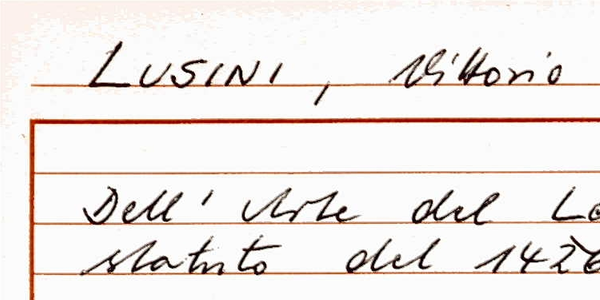 LUSINI, Vittorio
Dell'Arte del
statuto del 142